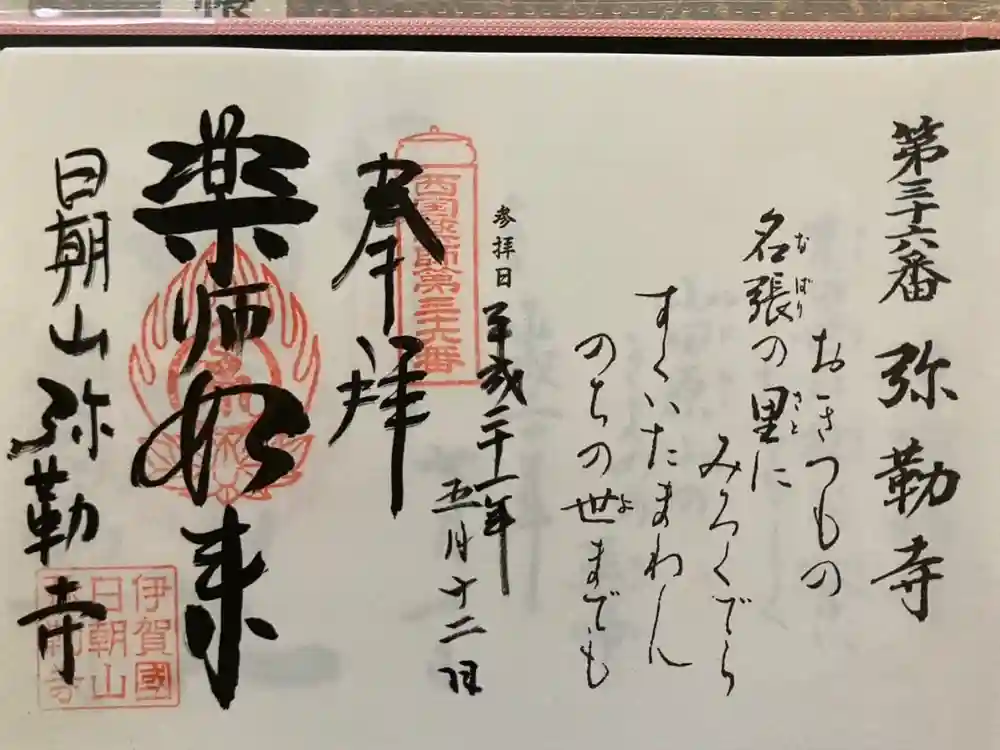 第三十六番 弥勒寺
おきつもの
名張の里に
なばり
さと
みろくでら
すくいたまわん
のちの世までも
よ
参拝日 平成二十一年
五月十二日
奉拝
西国薬師第三十六番
薬師如来
日朝山 弥勒寺
伊賀國
日朝山
弥勒寺